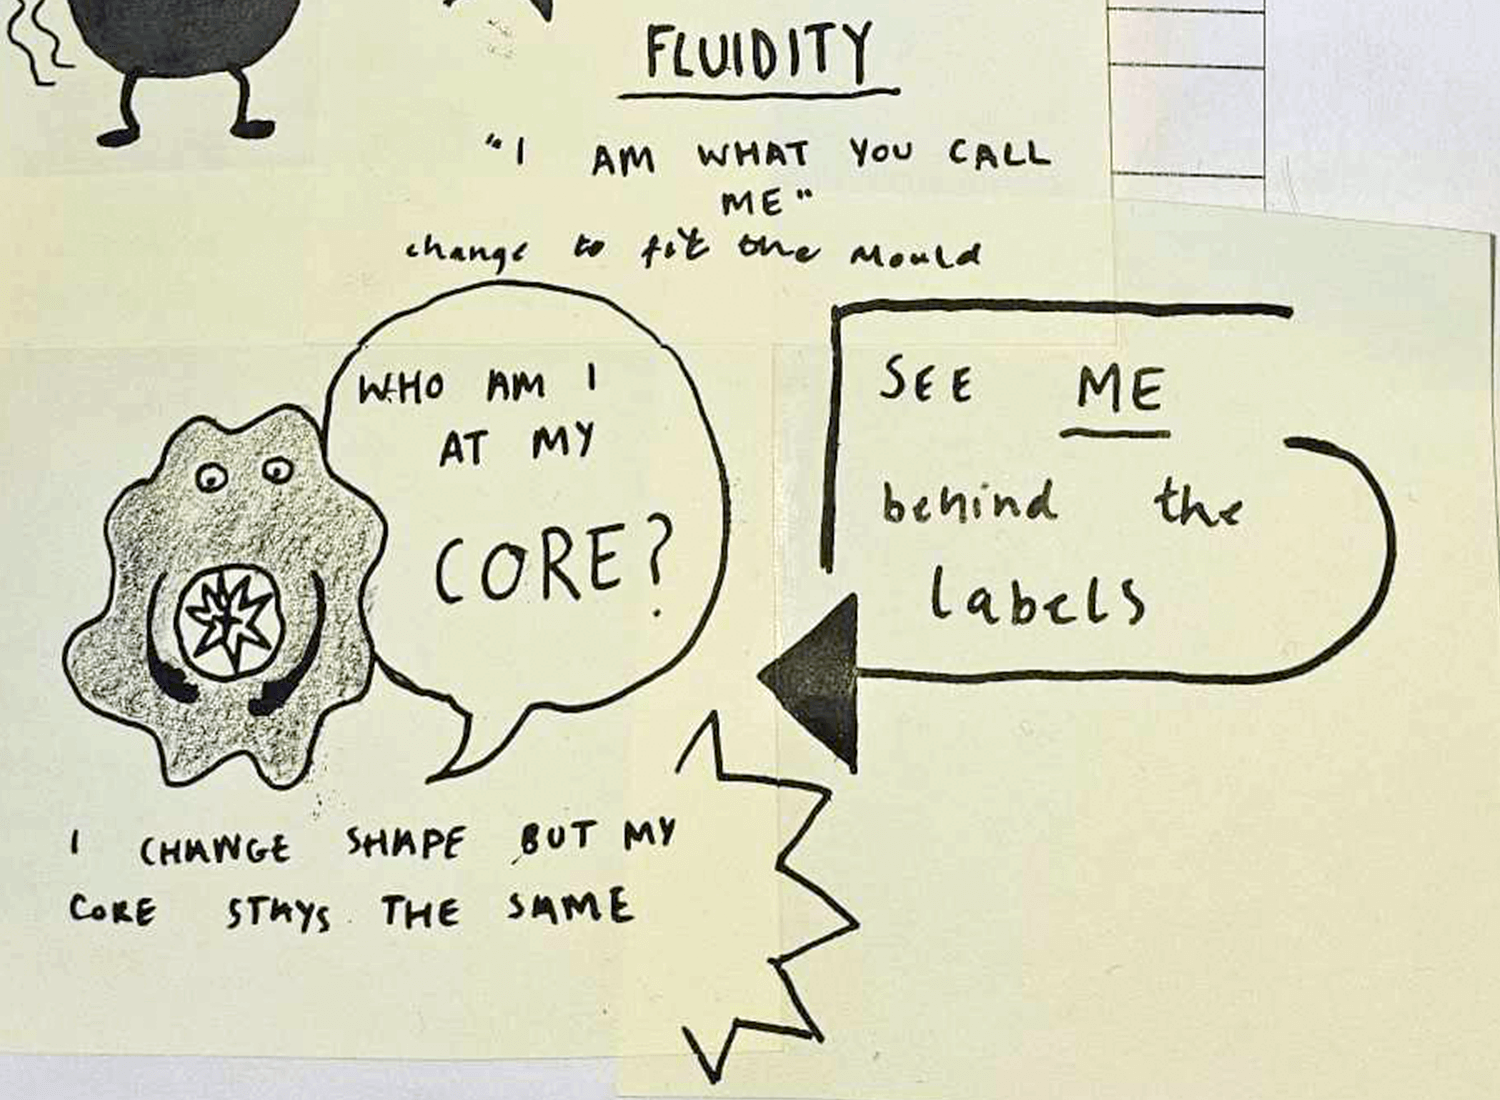 FLUIDITY
"I AM WHAT YOU CALL
ME"
change to fit the mould
WHO AM I
AT MY
CORE?
SEE ME
behind the
labels
I CHANGE SHAPE BUT MY
CORE STAYS THE SAME